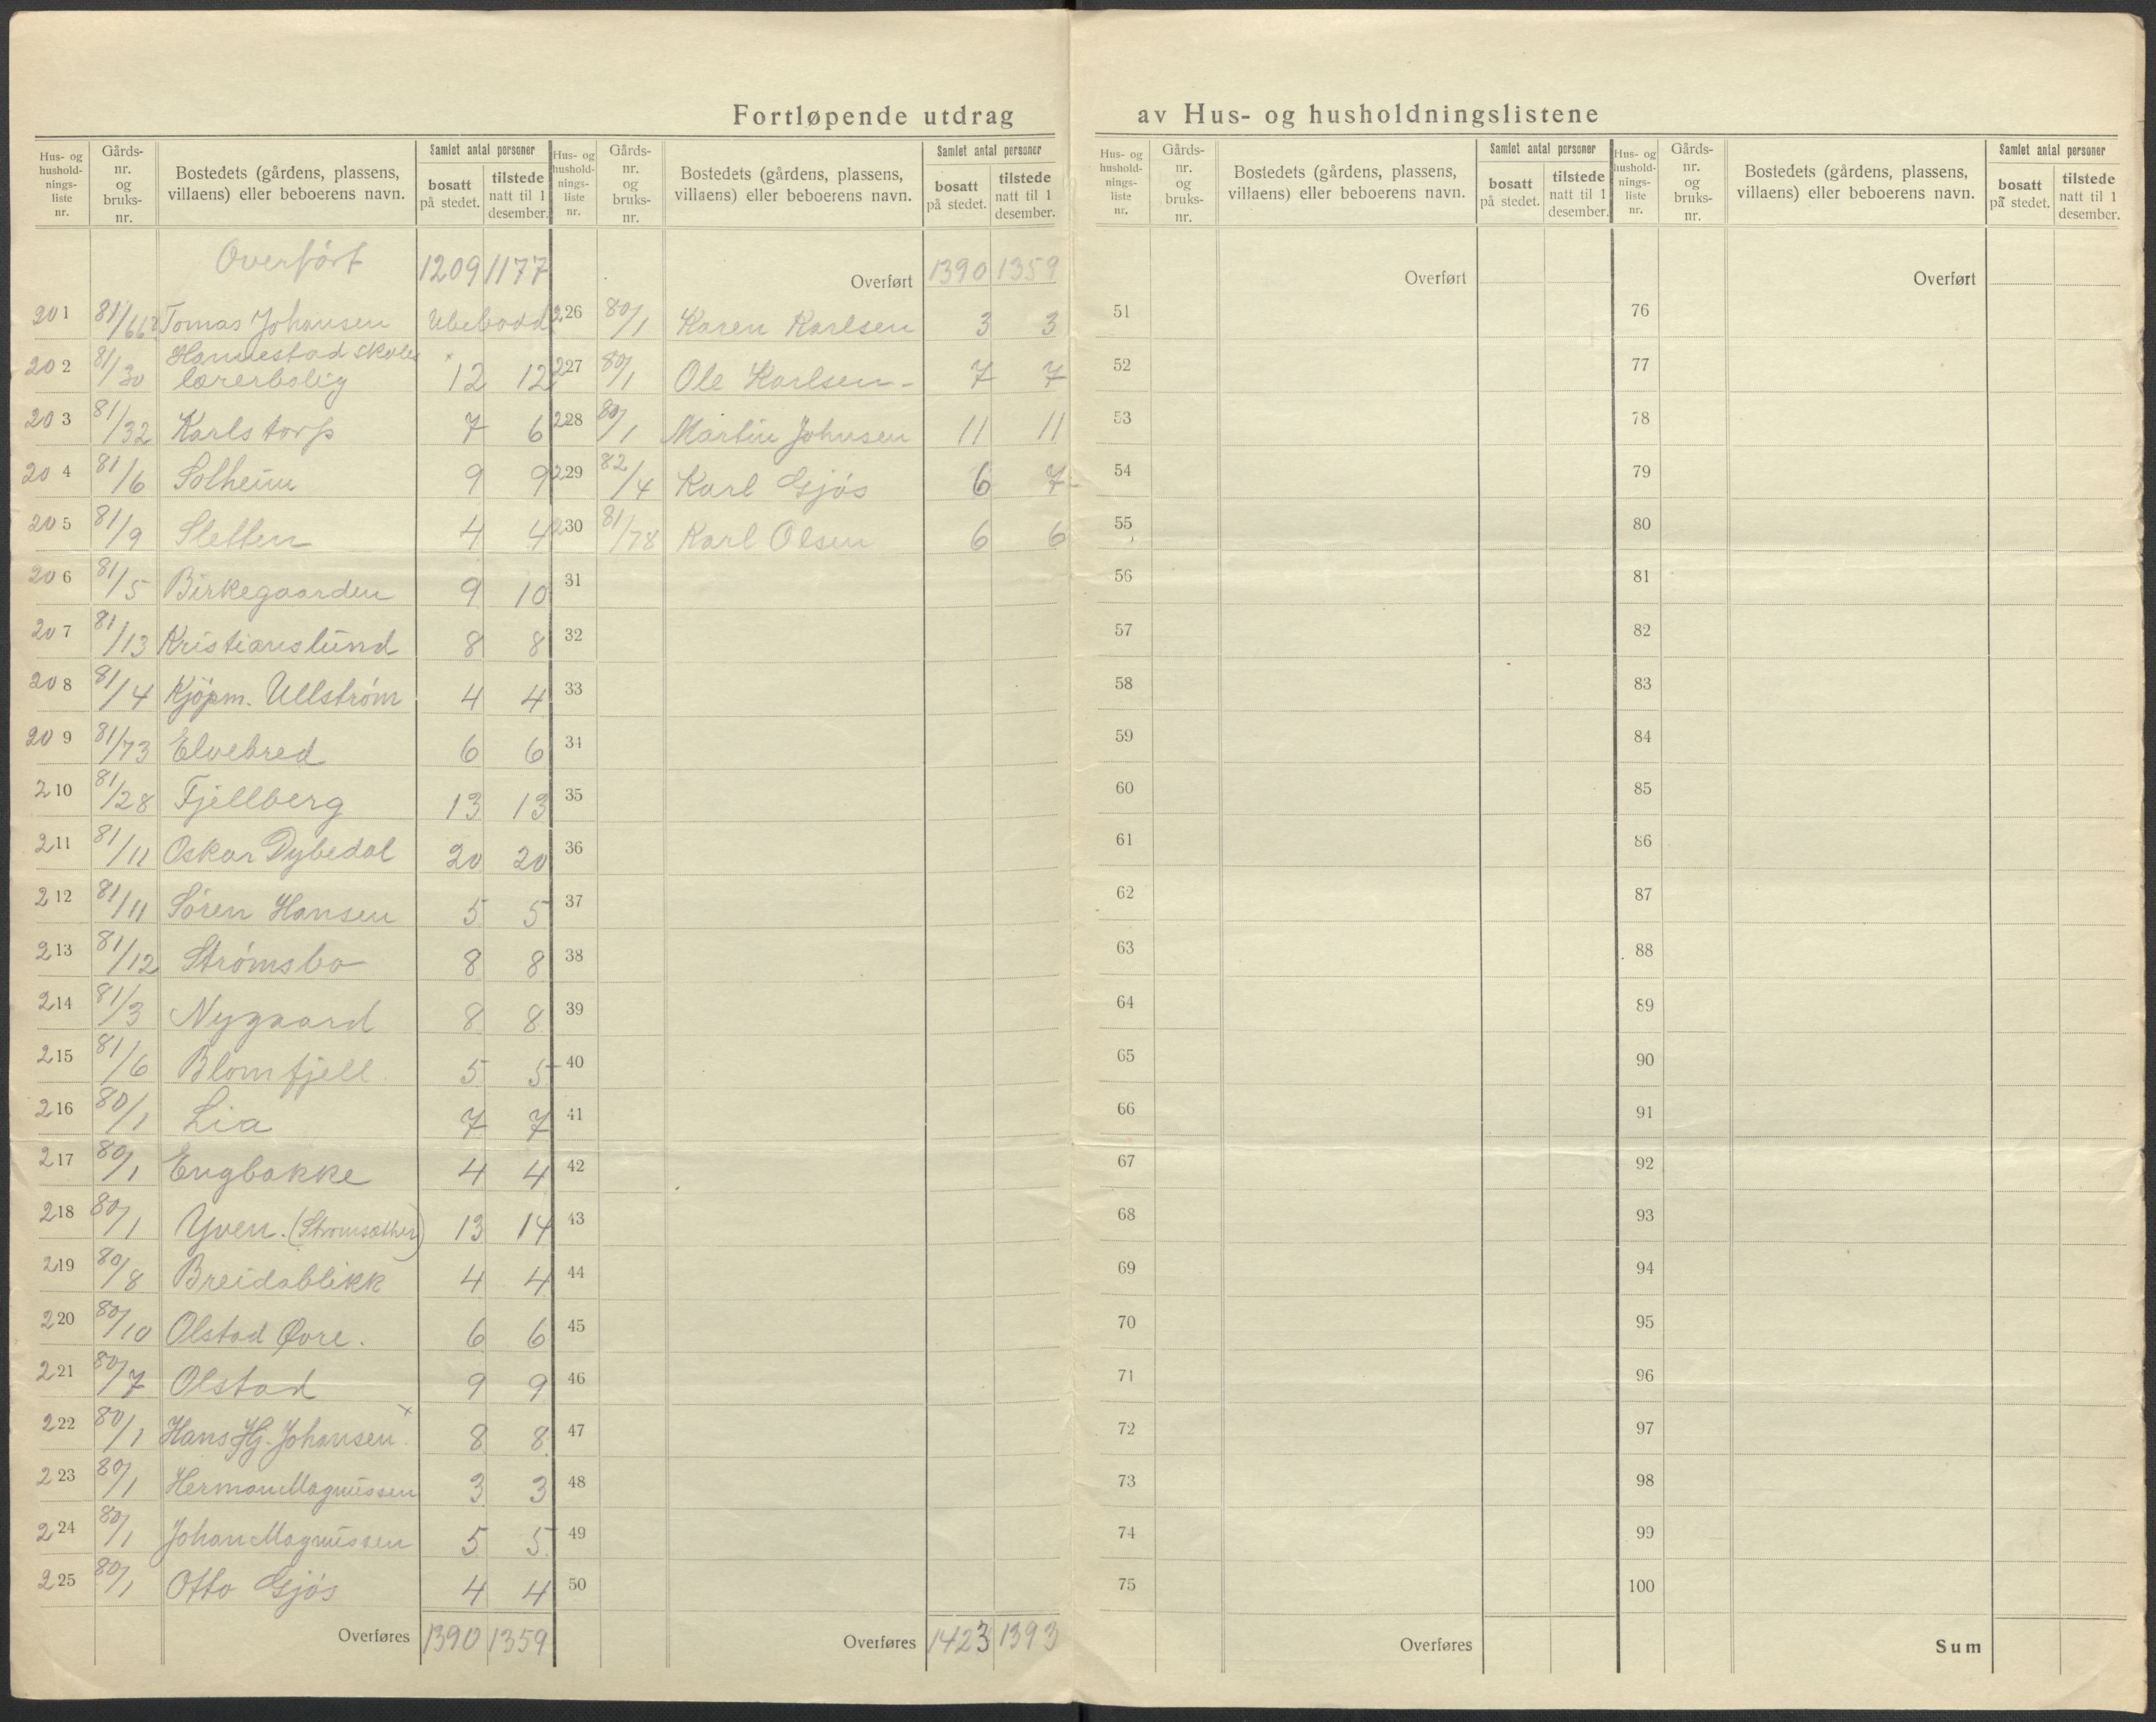 Fortløpende utdrag av Hus- og husholdningslistene
Hus- og hushold-nings-liste nr. Gårds-nr. og bruks-nr. Bostedets (gårdens, plassens, villaens) eller beboerens navn. Samlet antal personer bosatt på stedet. tilstede natt til 1 desember.
Overført 1209 1177
201 81/ Tomas Johansen Ubebodd
202 81/30 Hannestad skoles lærerbolig 12 12
203 81/32 Karlstorp 7 6
204 81/6 Solheim 9 9
205 81/9 Sletten 4 4
206 81/5 Birkegaarden 9 10
207 81/13 Kristianslund 8 8
208 81/4 Kjøpm. Ullstrøm 4 4
209 81/73 Elvebred 6 6
210 81/28 Fjellberg 13 13
211 81/11 Oskar Dybedal 20 20
212 81/11 Søren Hansen 5 5
213 81/12 Strømsbo 8 8
214 81/3 Nygaard 8 8
215 81/6 Blomfjell 5 5
216 80/1 Lia 7 7
217 80/1 Engbakke 4 4
218 80/1 Yven. (Strømsæther) 13 14
219 80/8 Breidablikk 4 4
220 80/10 Olstad Øvre. 6 6
221 80/7 Olstad 9 9
222 80/1 Hans Hj. Johansen x 8 8
223 80/1 Herman Magnussen 3 3
224 80/1 Johan Magnussen 5 5
225 80/1 Otto Gjøs 4 4
Overføres 1390 1359
Hus- og hushold-nings-liste nr. Gårds-nr. og bruks-nr. Bostedets (gårdens, plassens, villaens) eller beboerens navn. Samlet antal personer bosatt på stedet. tilstede natt til 1 desember.
Overført 1390 1359
226 80/1 Karen Karlsen 3 3
227 80/1 Ole Karlsen 7 7
228 80/1 Martin Johnsen 11 11
229 82/4 Karl Gjøs 6 7
230 81/78 Karl Olsen 6 6
31
32
33
34
35
36
37
38
39
40
41
42
43
44
45
46
47
48
49
50
Overføres 1423 1393
Hus- og hushold-nings-liste nr. Gårds-nr. og bruks-nr. Bostedets (gårdens, plassens, villaens) eller beboerens navn. Samlet antal personer bosatt på stedet. tilstede natt til 1 desember.
Overført
51
52
53
54
55
56
57
58
59
60
61
62
63
64
65
66
67
68
69
70
71
72
73
74
75
Overføres
Hus- og hushold-nings-liste nr. Gårds-nr. og bruks-nr. Bostedets (gårdens, plassens, villaens) eller beboerens navn. Samlet antal personer bosatt på stedet. tilstede natt til 1 desember.
Overført
76
77
78
79
80
81
82
83
84
85
86
87
88
89
90
91
92
93
94
95
96
97
98
99
100
Sum